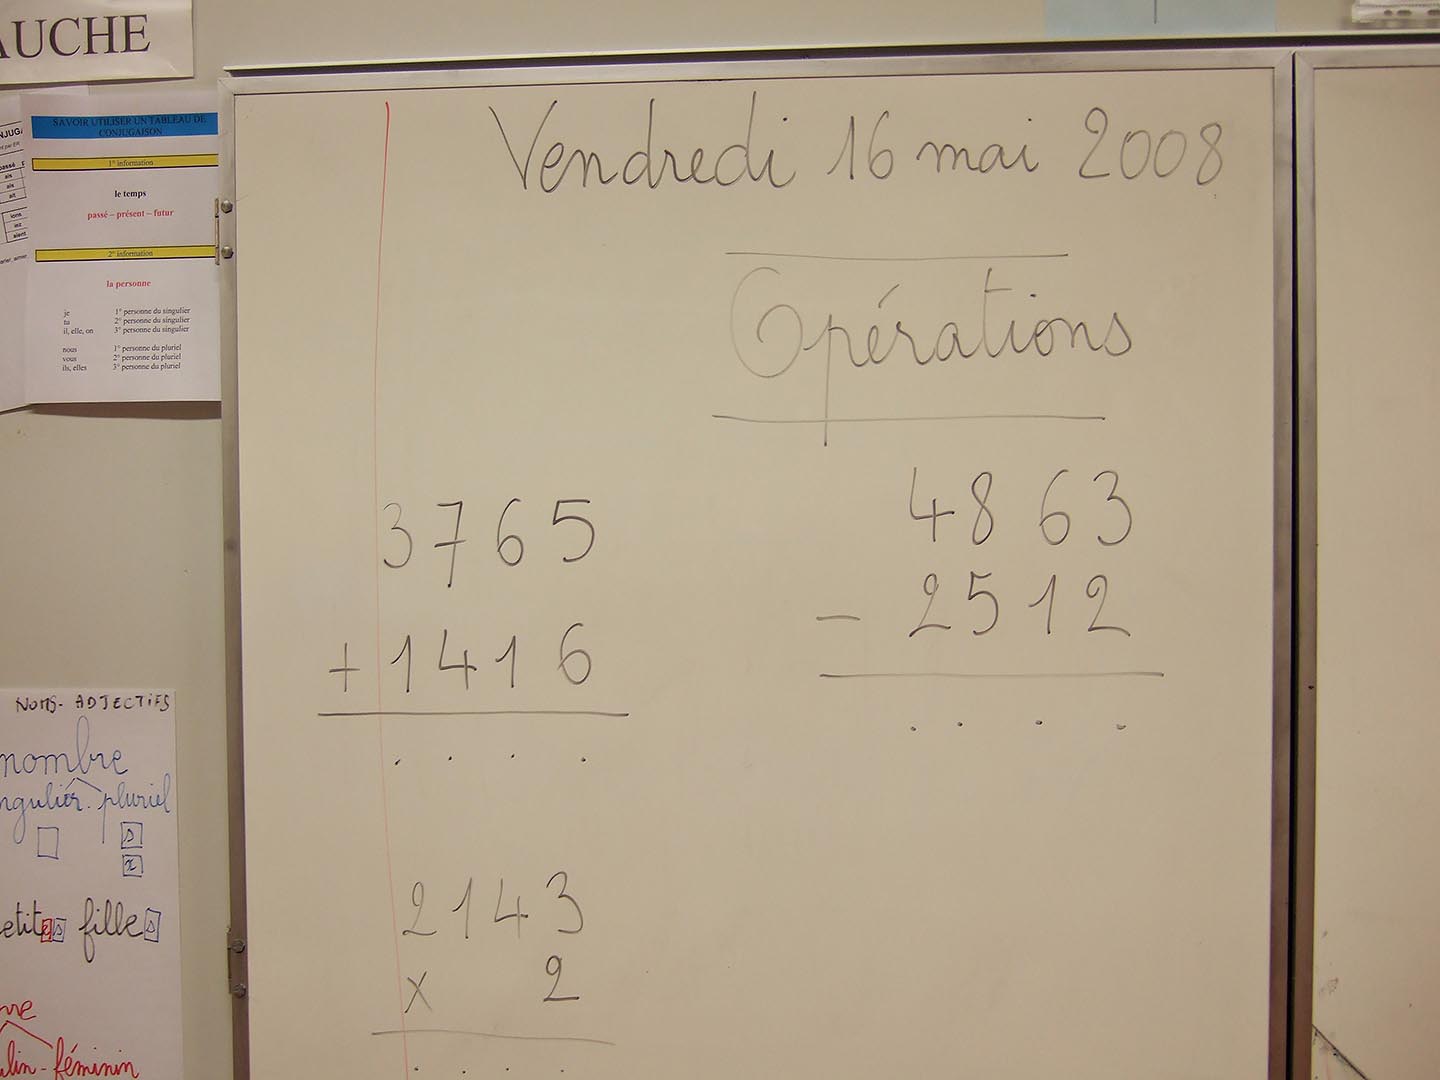 AUCHE
SAVOIR UTILISER UN TABLEAU DE
CONJUGAISON
1° information
le temps
passé – présent – futur
2° information
la personne
je 1° personne du singulier
tu 2° personne du singulier
il, elle, on 3° personne du singulier
nous 1° personne du pluriel
vous 2° personne du pluriel
ils, elles 3° personne du pluriel
Vendredi 16 mai 2008
Opérations
3765
+ 1416
. . . .
4863
- 2512
. . . .
2143
x 2
. . . .
NOMS - ADJECTIFS
nombre
ngulier - pluriel
s
x
etites filles
lin - féminin